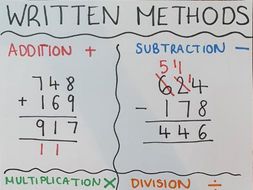 WRITTEN METHODS
ADDITION +
748
+ 169
917
11
SUBTRACTION −
5 1 1
624
− 178
446
MULTIPLICATION ×
DIVISION ÷